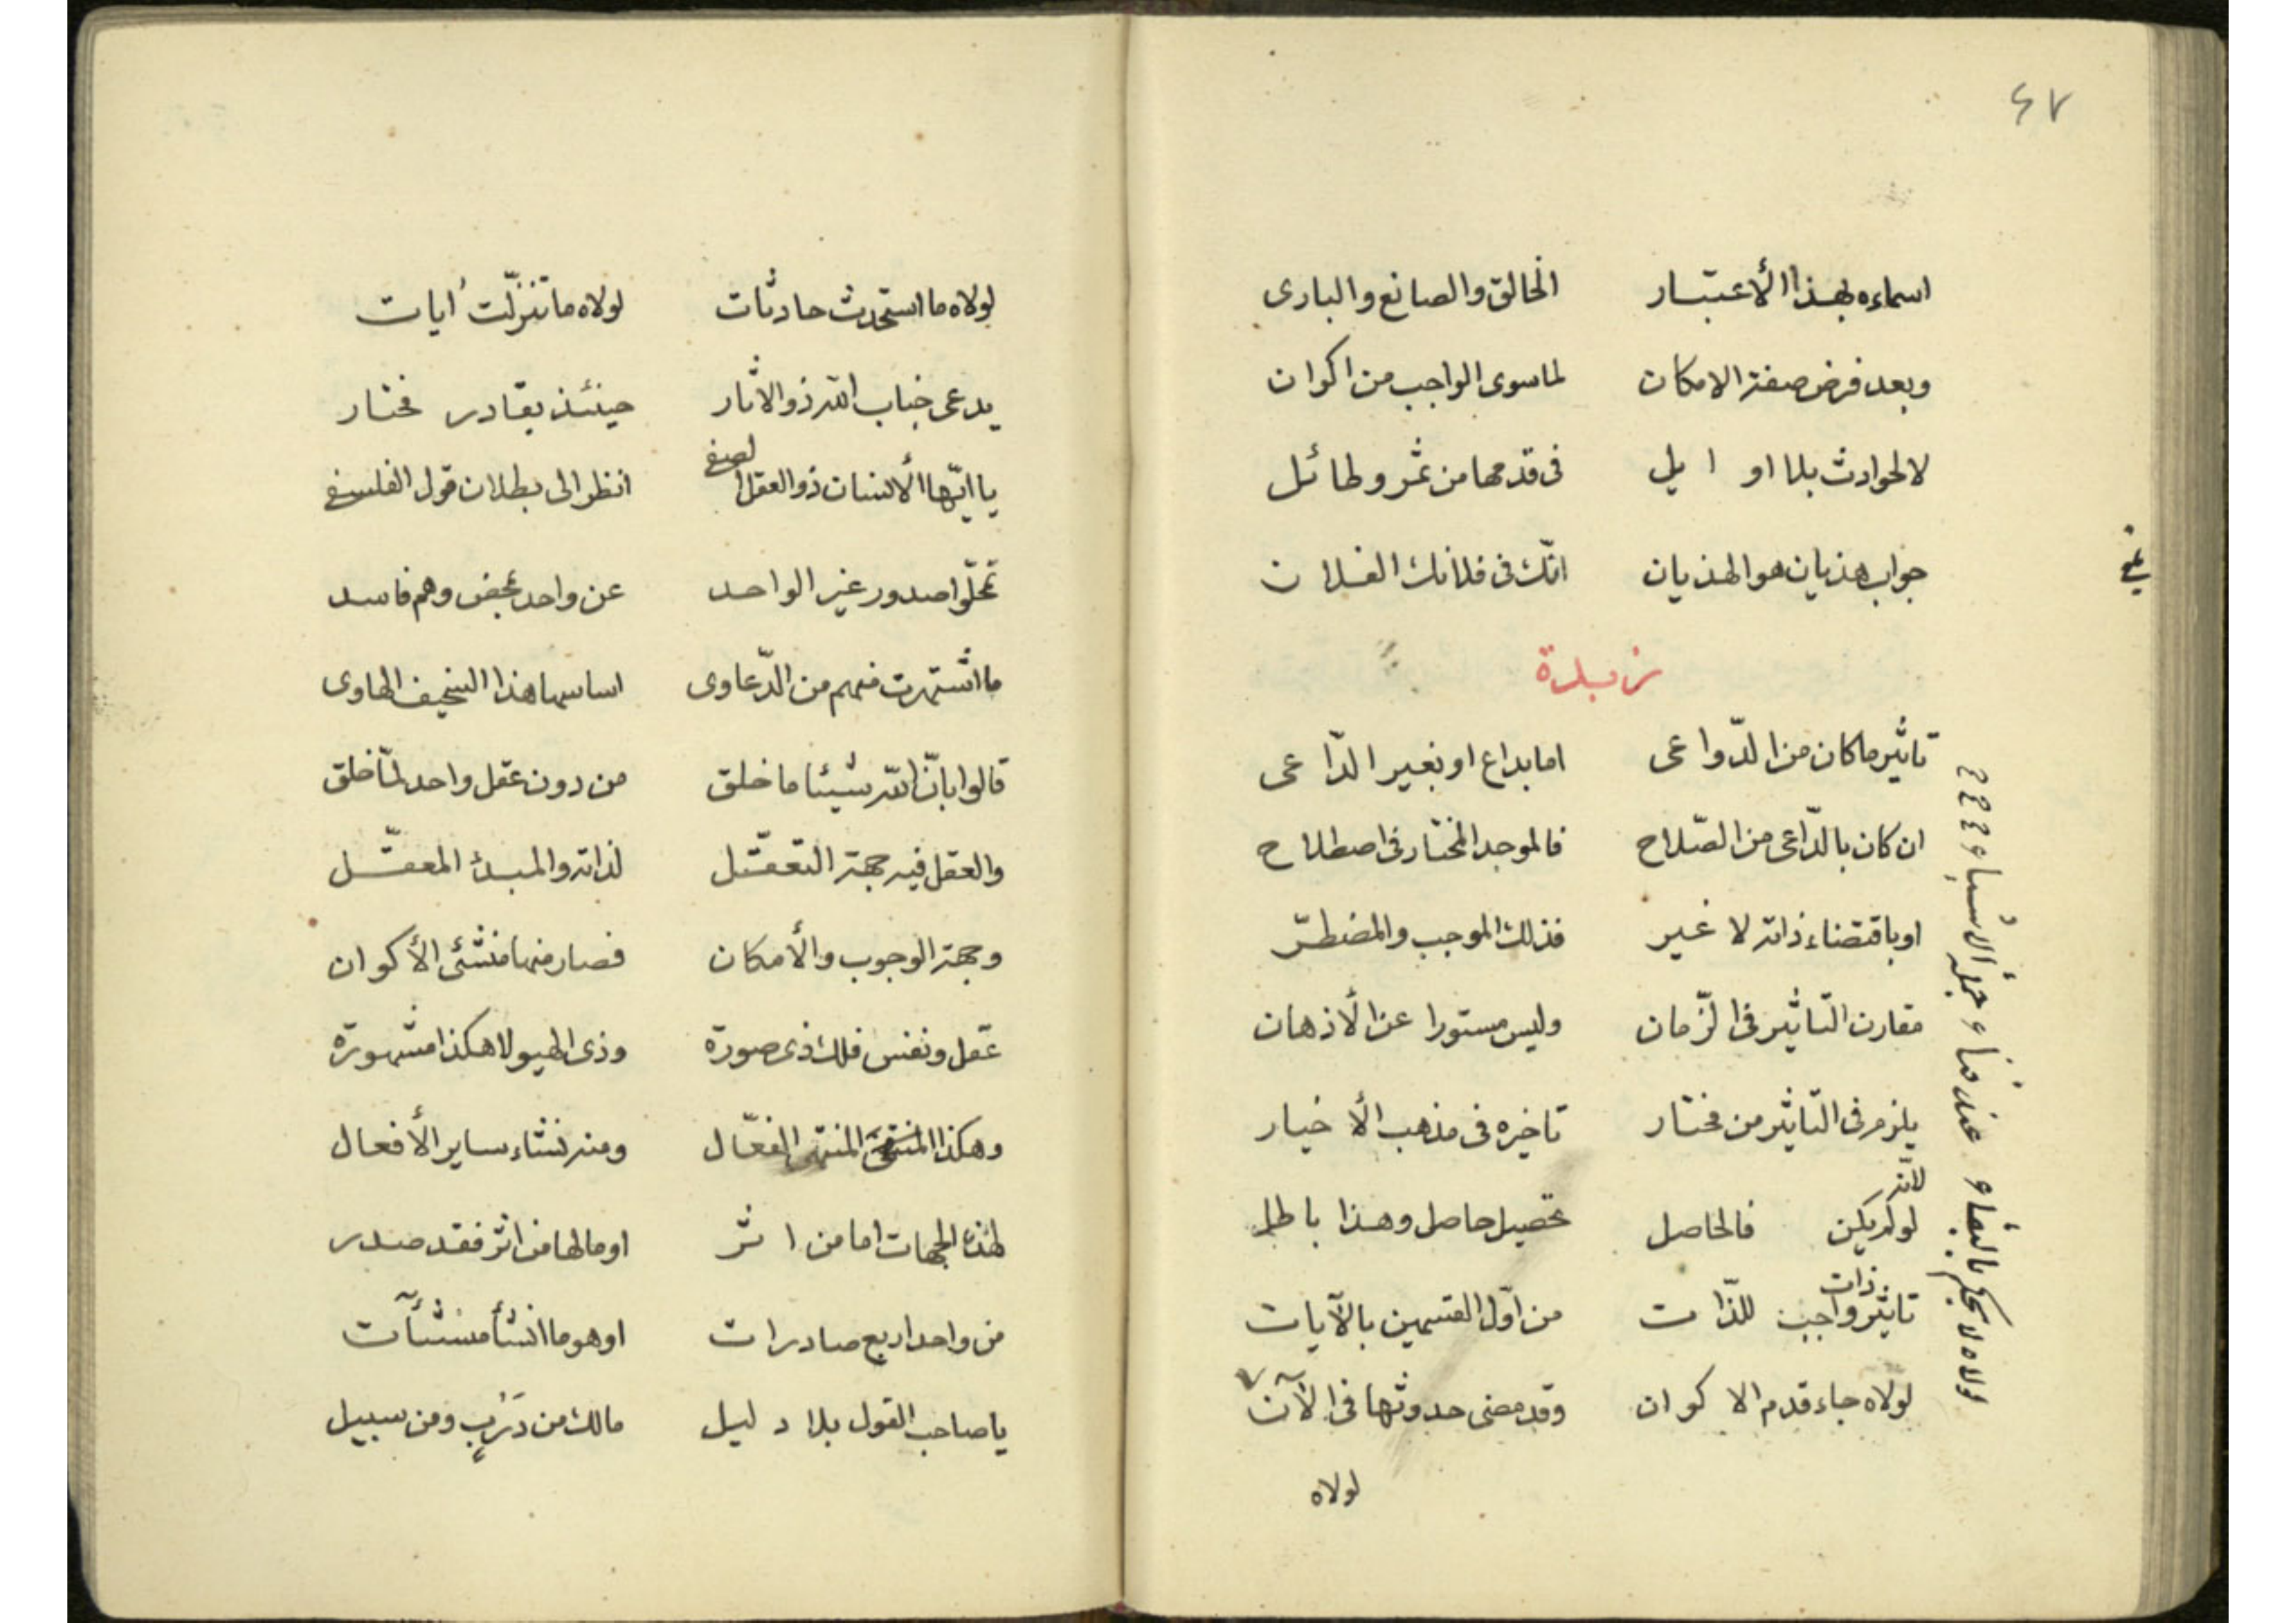 ٤٧
اسماءه بهذا الأعتبار الخالق والصانع والبارى
وبعد فرض صفة الامكان لما سوى الواجب من اكوان
لا لحوادث بلا اوايل فى قدمها من ثمر وطائل
جواب هذيان هو الهذيان انّك فى فلانك الفلان
زبدة
تاثير ما كان من الدّواعى اما بداع او بغير الدّاعى
ان كان بالدّاعى من الصّلاح فالموجد المختار فى اصطلاح
او باقتضاء ذاته لا غير فذلك الموجب والمضطرّ
مقارن التّاثير فى الزّمان وليس مستورا عن الأذهان
يلزم فى التّاثير من مختار تاخيره فى مذهب الأخيار
لانه
لو لم يكن فالحاصل تحصيل حاصل وهذا باطل
ذات
تاثير واجب للذّات من اوّل القسمين بالآيات
لولاه جاء قدم الاكوان وقد مضى حدوثها فى الآن
لولاه
لولاه لا تحكم بالبقاء عند فناء جملة الأشياء
لولاه ما استحدثت حادثات لولاه ما تنزّلت ايات
يدعى جناب الله ذو الاثار حينئذ بقادر مختار
يا ايّها الأنسان ذو العقل الصفى انظر الى بطلان قول الفلسفى
تحلّوا صدور غير الواحد عن واحد محض وهم فاسد
ما اشتهرت منهم من الدّعاوى اساسها هذا السخيف الهاوى
قالوا بانّ الله شيئا ما خلق من دون عقل واحد لمّا خلق
والعقل فيه جهة التعقّل لذاته والمبدأ المعقّل
وجهة الوجوب والأمكان فصار منها منشئ الأكوان
عقل ونفس فلك ذى صورة وذى الهيولا هكذا مشهورة
وهكذا المنتهى الفعّال ومنه نشاء ساير الأفعال
لهذه الجهات اما من اثر او ما لها من اثر فقد صدر
من واحد اربع صادرات او هو ما انشأ منشئآت
يا صاحب القول بلا دليل مالك من درب ومن سبيل